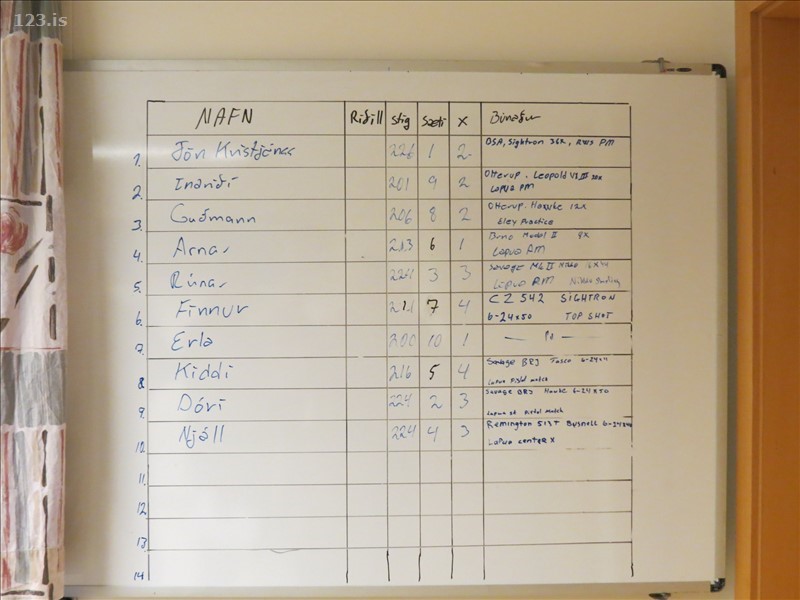 123.is
NAFN Riffill stig Sæti X Búnaður
1. Jón Kristjáns 226 1 2 BSA, Sightron 36x, RWS PM
2. Indriði 201 9 2 Otterup. Leopold VX III
Lapua PM
3. Guðmann 206 8 2 Otterup. Hawke 12x
Eley Practice
4. Arnar 213 6 1 Brno Model II 9x
Lapua PM
5. Rúnar 224 3 3 Savage MK II
Lapua PM
6. Finnur 211 7 4 CZ 542 SIGHTRON
6-24x50 TOP SHOT
7. Erla 200 10 1
8 Kiddi 216 5 4 Savage BRJ Tasco
Lapua Pistol match
9. Dóri 224 2 3 Savage BRJ Hawke 6-24x50
Lapua Pistol Match
10. Njáll 224 4 3 Remington 513T Busnell
Lapua center X
11.
12.
13.
14